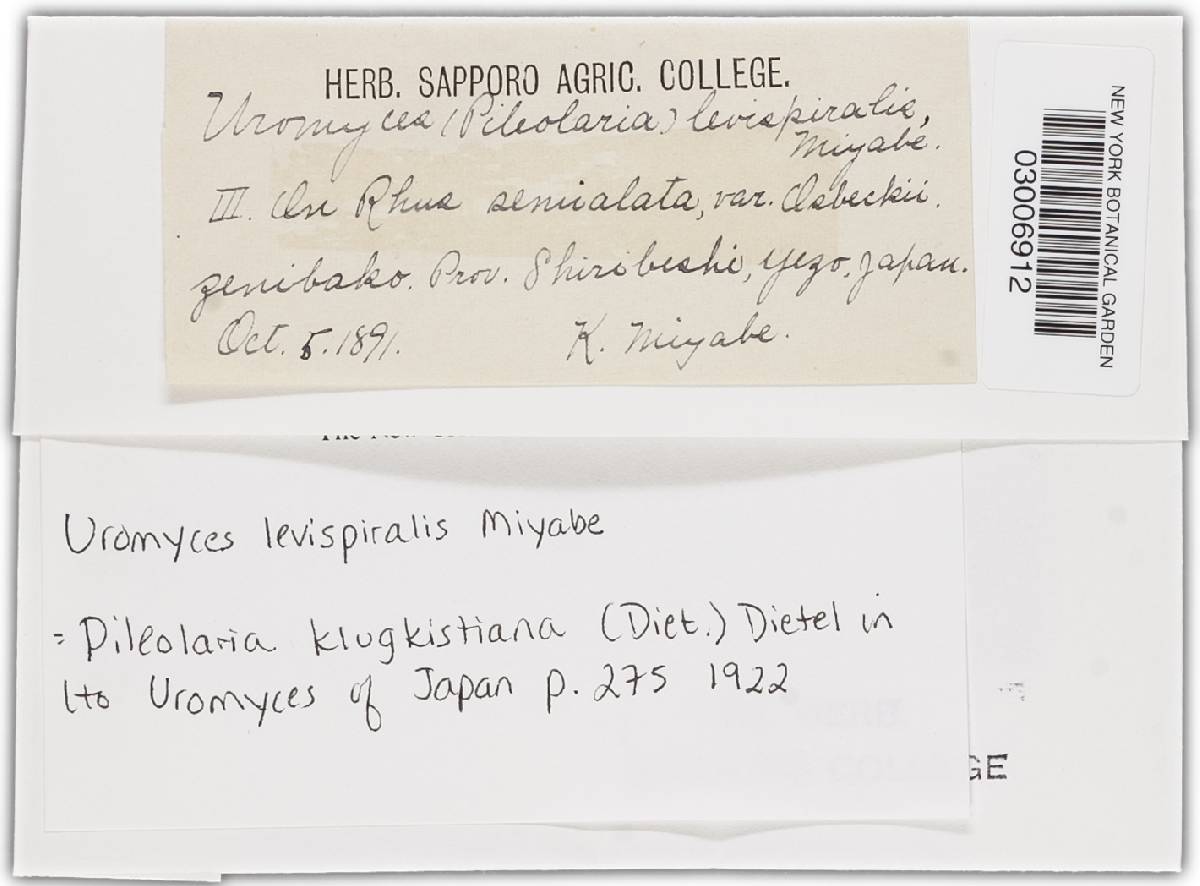 HERB. SAPPORO AGRIC. COLLEGE.
Uromyces (Pileolaria) levispiralis,
Miyabe.
III. On Rhus semialata, var. Osbeckii.
Zenibako. Prov. Shiribeshi, Yezo, Japan.
Oct. 5. 1891. K. Miyabe.
NEW YORK BOTANICAL GARDEN
03006912
Uromyces levispiralis Miyabe
= Pileolaria klugkistiana (Diet.) Dietel in
Ito Uromyces of Japan p. 275 1922
GE